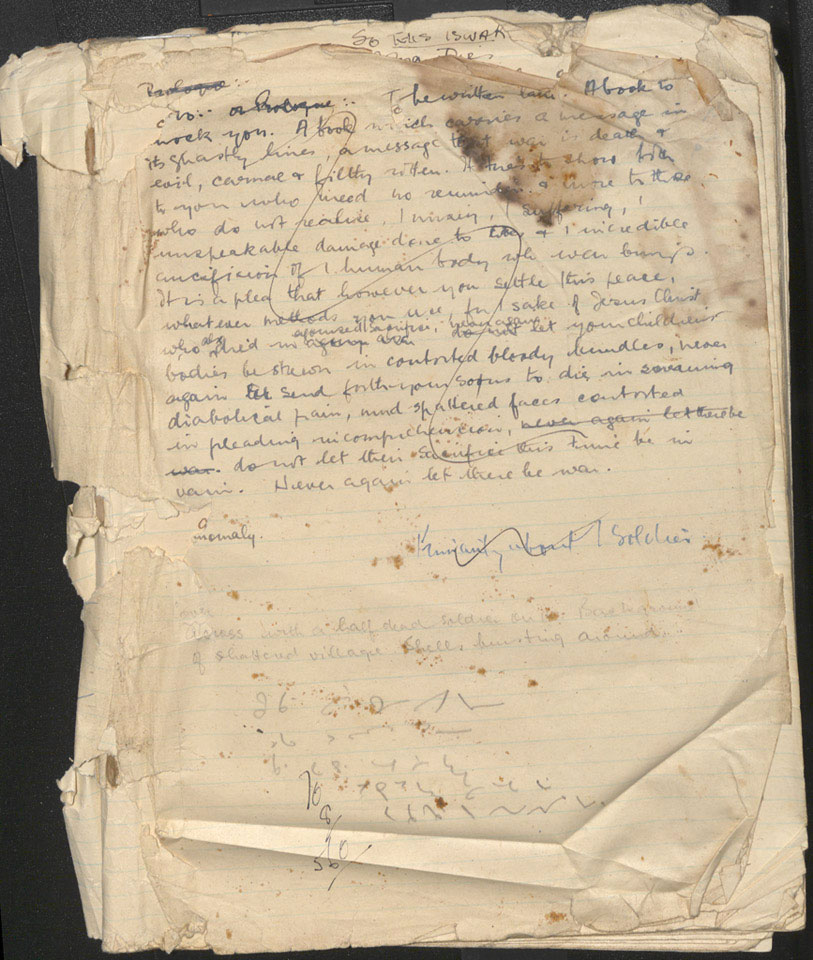 So this is WAR
Prologue
or Prologue :. To be written last. A book to
shock you. A book which carries a message in
its ghastly lines, a message that war is death &
evil, carnal & filthy rotten. to show both
to you who need no reminder & more to those
who do not realise, / misery, / suffering, /
unspeakable damage done to & / incredible
crucifixion of / human body who war brings.
It is a plea that however you settle this peace,
whatever methods you use, for / sake of Jesus Christ
agonised sacrifice, never again
who also died in do not let your childrens
bodies be strewn in contorted bloody bundles, never
again send forth your sons to die in screaming
diabolical pain, mud spattered faces contorted
in pleading incomprehension, never again let there be
war. do not let their sacrifice this time be in
vain. Never again let there be war.
anomaly.
Humanity about / Soldier
Cross with a half dead soldier on it. Background
of shattered village. Shells bursting around.
26
26
70
8
560